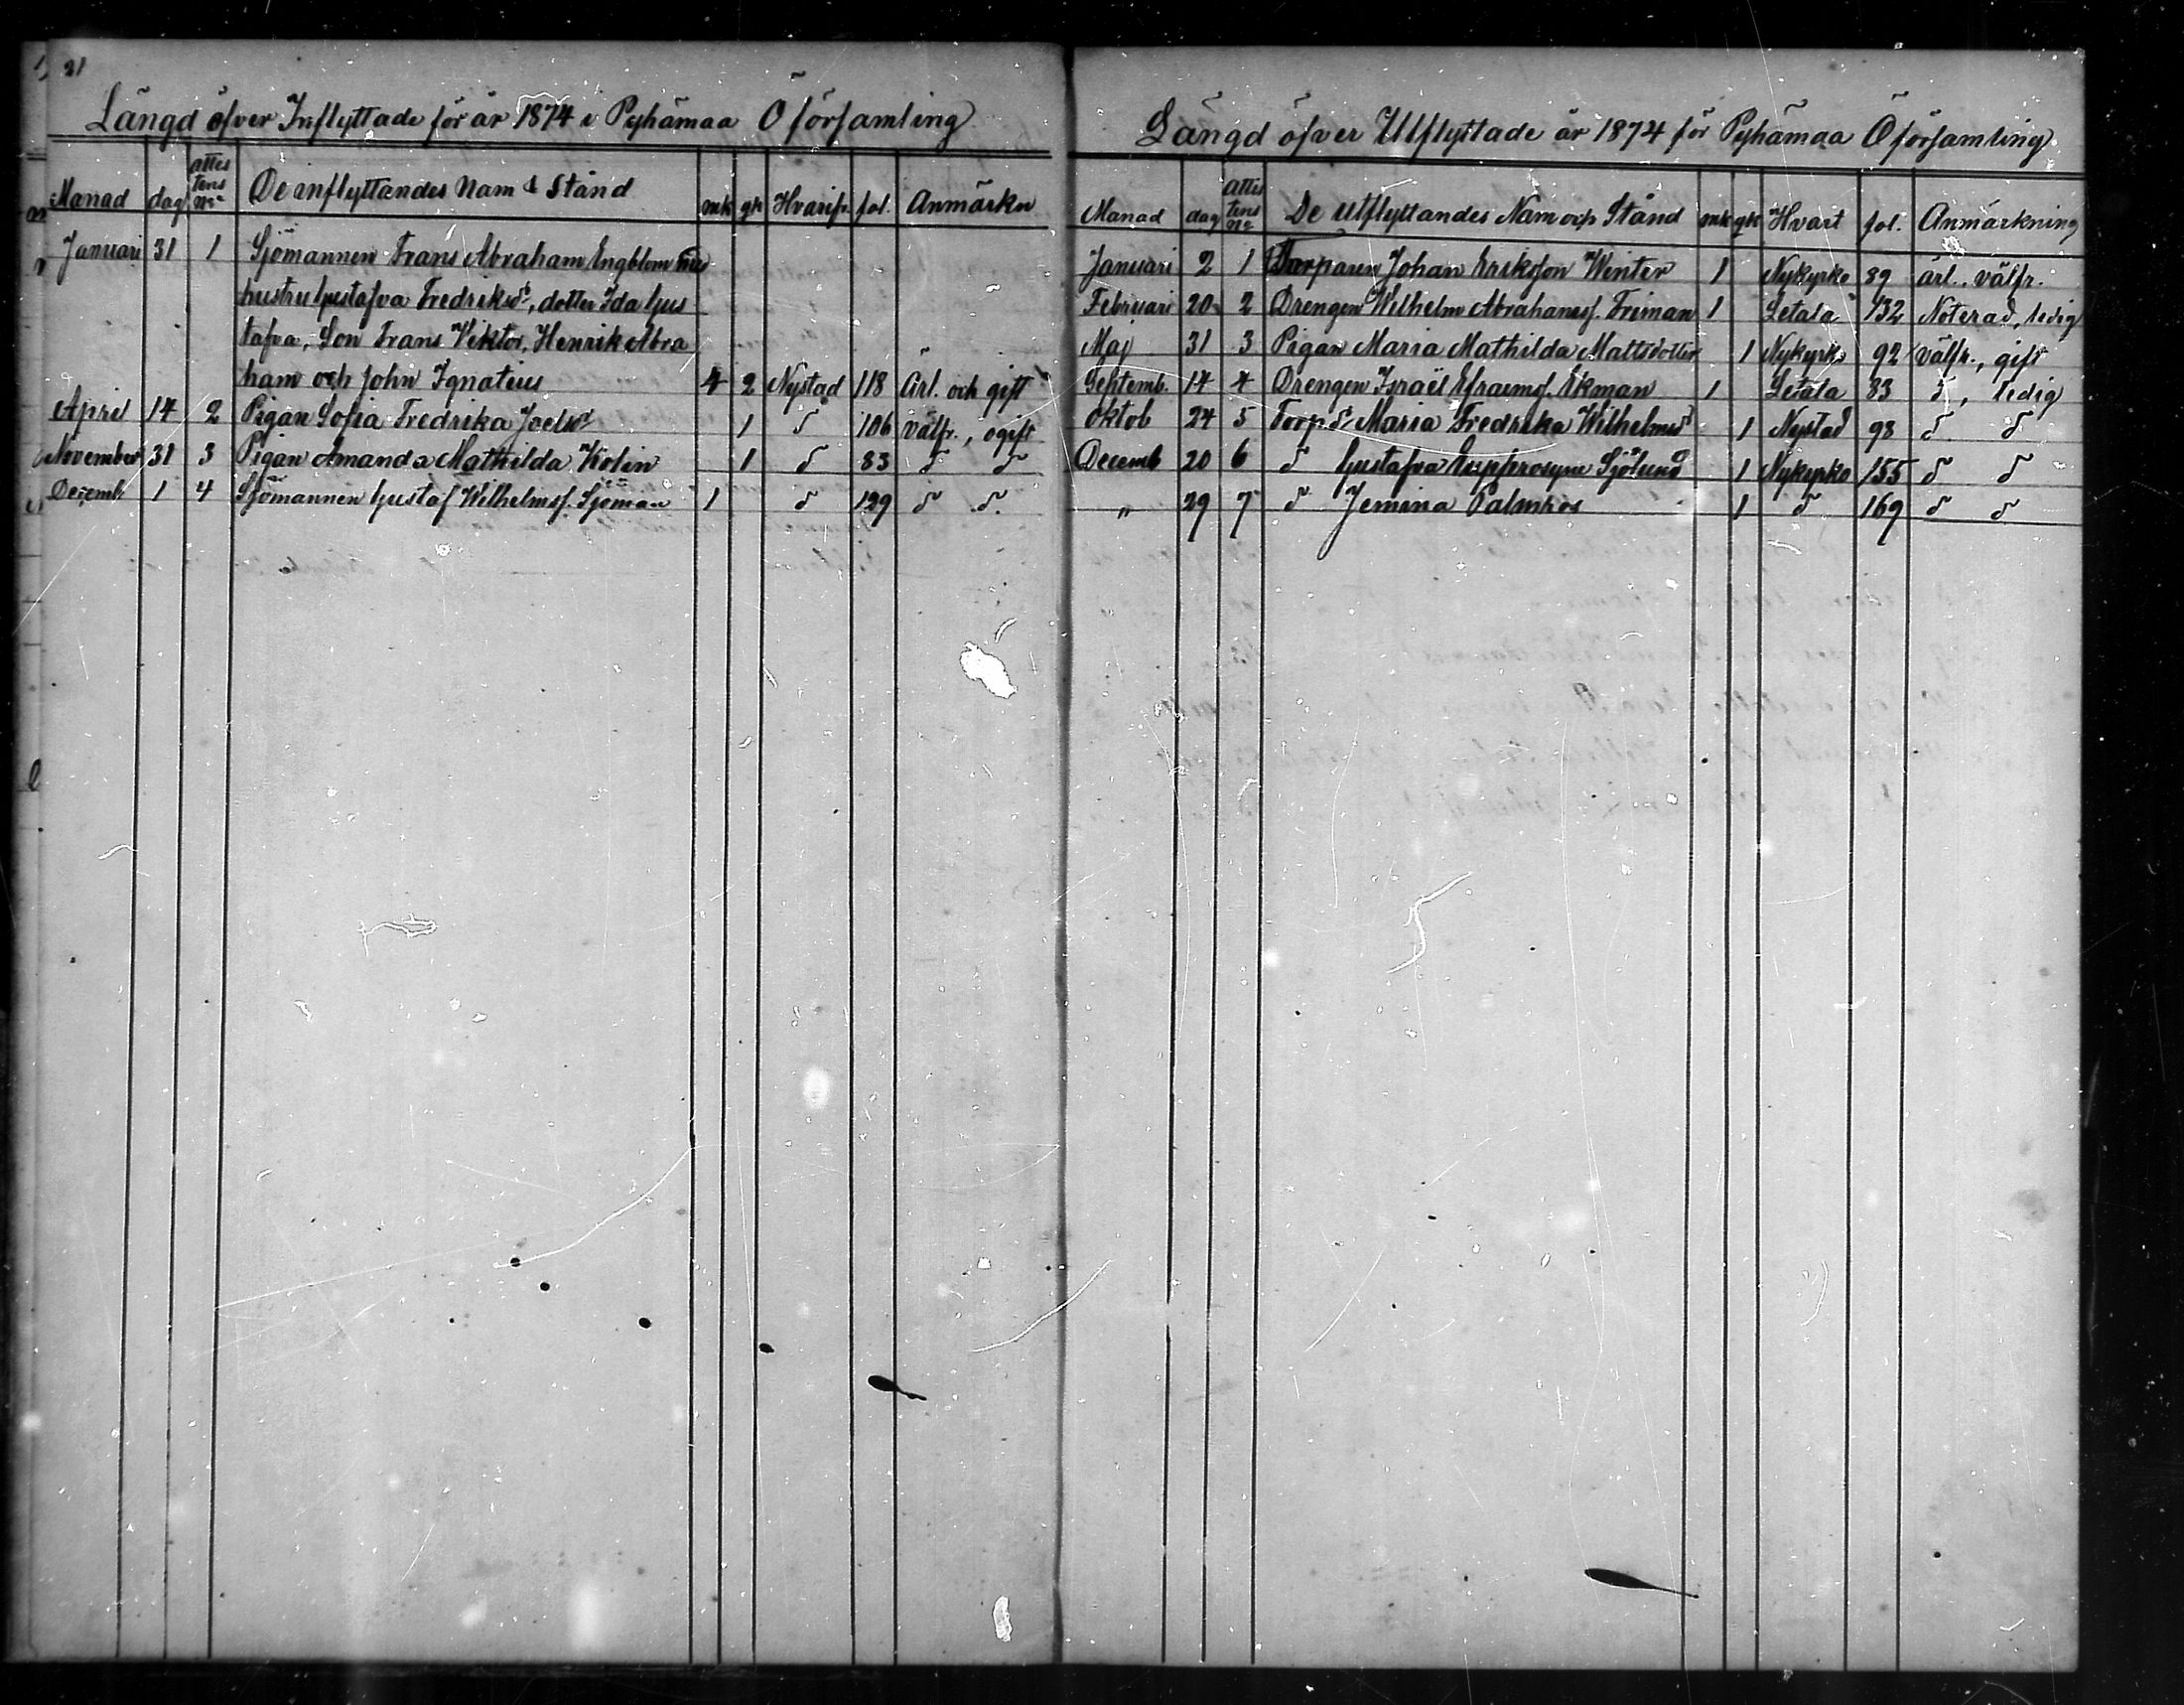 21
Längd öfver Inflyttade för år 1874 i Pyhämaa Ö församling
Månad dag attestens No De inflyttandes Nam & Stånd mk qk Hvarifr. fol. Anmärkn
Januari 31 1 Sjömannen Frans Abraham Engblom med
hustru Gustafva Fredriksd:r, dotter Ida Gus
tafva, Son Frans Viktor, Henrik Abra
ham och John Ignatius 4 2 Nystad 118 Ärl. och gift
April 14 2 Pigan Sofia Fredrika Joelsd:r 1 d:o 106 välfr., ogift
November 31 3 Pigan Amanda Mathilda Kolin 1 d:o 83 d:o d:o
Decemb 1 4 Sjömannen Gustaf Wilhelmss. Sjöman 1 d:o 129 d:o d:o
Längd öfver Utflyttade år 1874 för Pyhämaa Ö församling
Månad dag attestens No De utflyttandes Nam och Stånd mk qk Hvart fol. Anmärkning
Januari 2 1 Torparen Johan Eriksson Winter 1 Nykyrko 89 ärl., välfr.
Februari 20 2 Drengen Wilhelm Abrahamss. Friman 1 Letala 132 Noterad, ledig
Maj 31 3 Pigan Maria Mathilda Mattsdotter 1 Nykyrko 92 välfr., gift
Septemb. 14 4 Drengen Israël Efraimss. Ekman 1 Letala 83 d:o, ledig
Oktob 24 5 Torpd:r Maria Fredrika Wilhelmsd:r 1 Nystad 98 d:o d:o
Decemb 20 6 d:o Gustafva Euphrosyne Sjölund 1 Nykyrko 155 d:o d:o
„ 29 7 d:o Jemina Palmros 1 d:o 169 d:o d:o